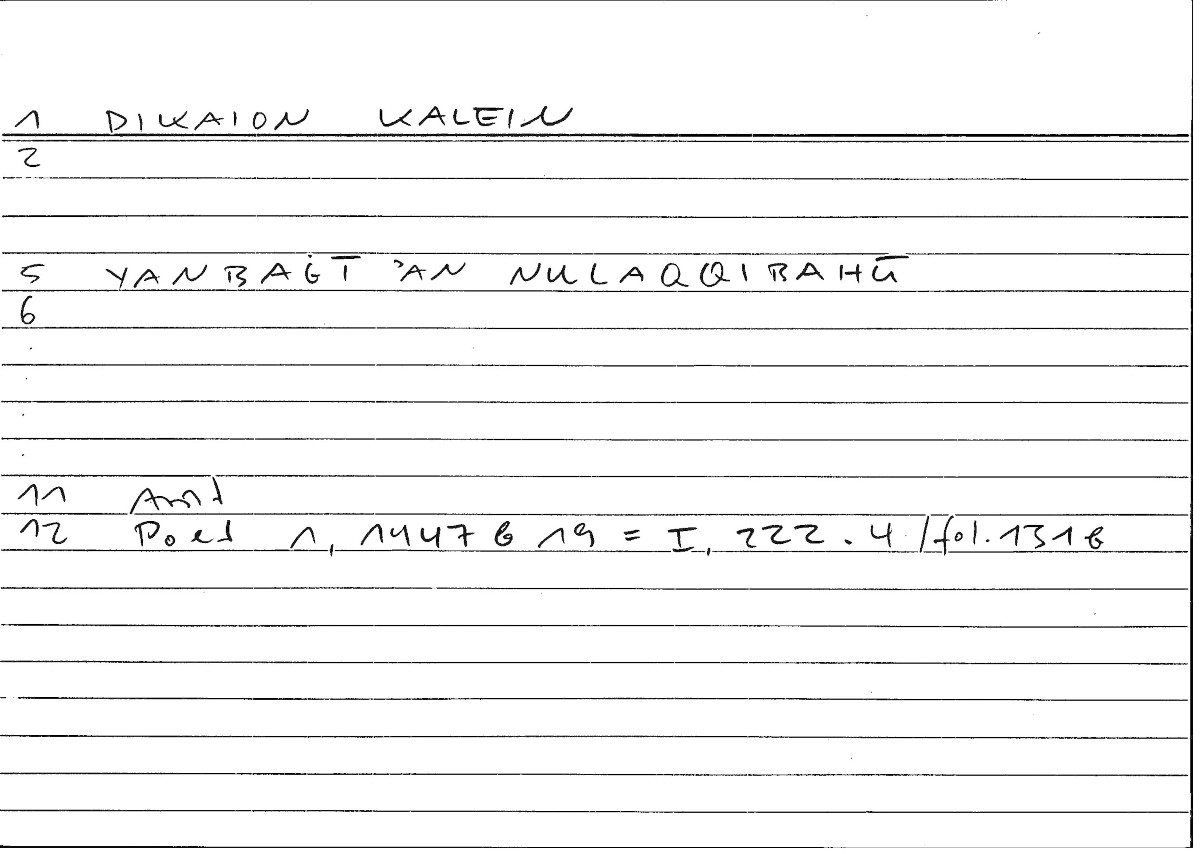 1 DIKAION KALEIN
2
5 YANBAĠĪ ʾAN NULAQQIBAHŪ
6
.
.
.
.
11 Arist
12 Poet 1, 1447 b 19 = I, 222.4 / fol.131b